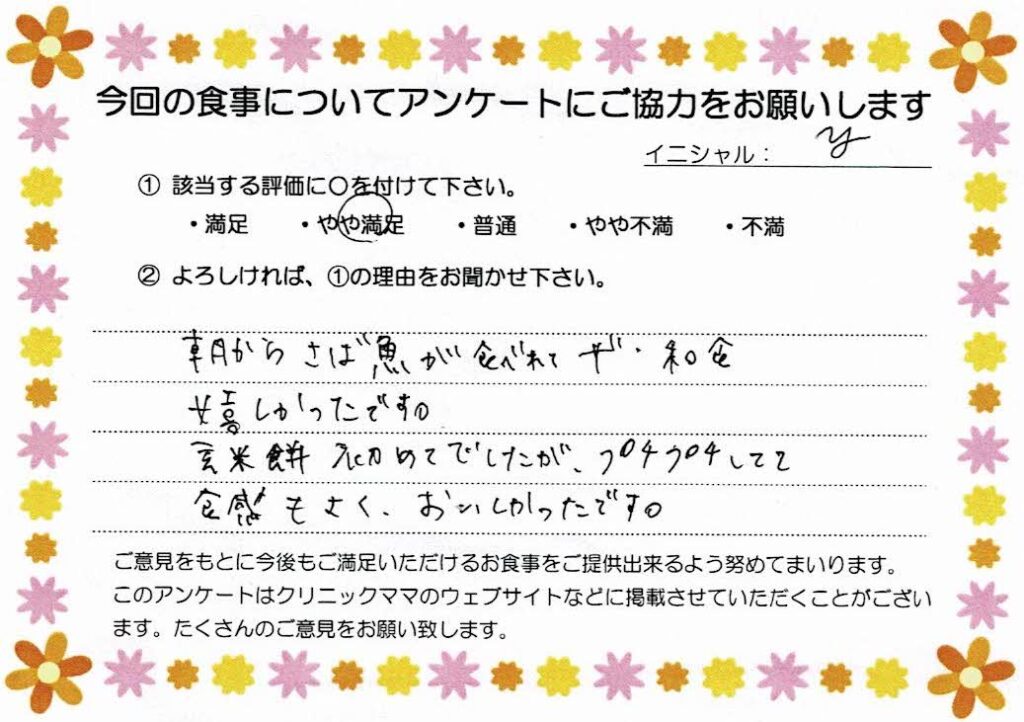 今回の食事についてアンケートにご協力をお願いします
イニシャル： y
① 該当する評価に〇を付けて下さい。
・満足 ・やや満足 ・普通 ・やや不満 ・不満
② よろしければ、①の理由をお聞かせ下さい。
朝からさば魚が食べれて ザ・和食
嬉しかったです。
玄米餅 初めてでしたが、プチプチしてて
食感もよく、おいしかったです。
ご意見をもとに今後もご満足いただけるお食事をご提供出来るよう努めてまいります。
このアンケートはクリニックママのウェブサイトなどに掲載させていただくことがござい
ます。たくさんのご意見をお願い致します。